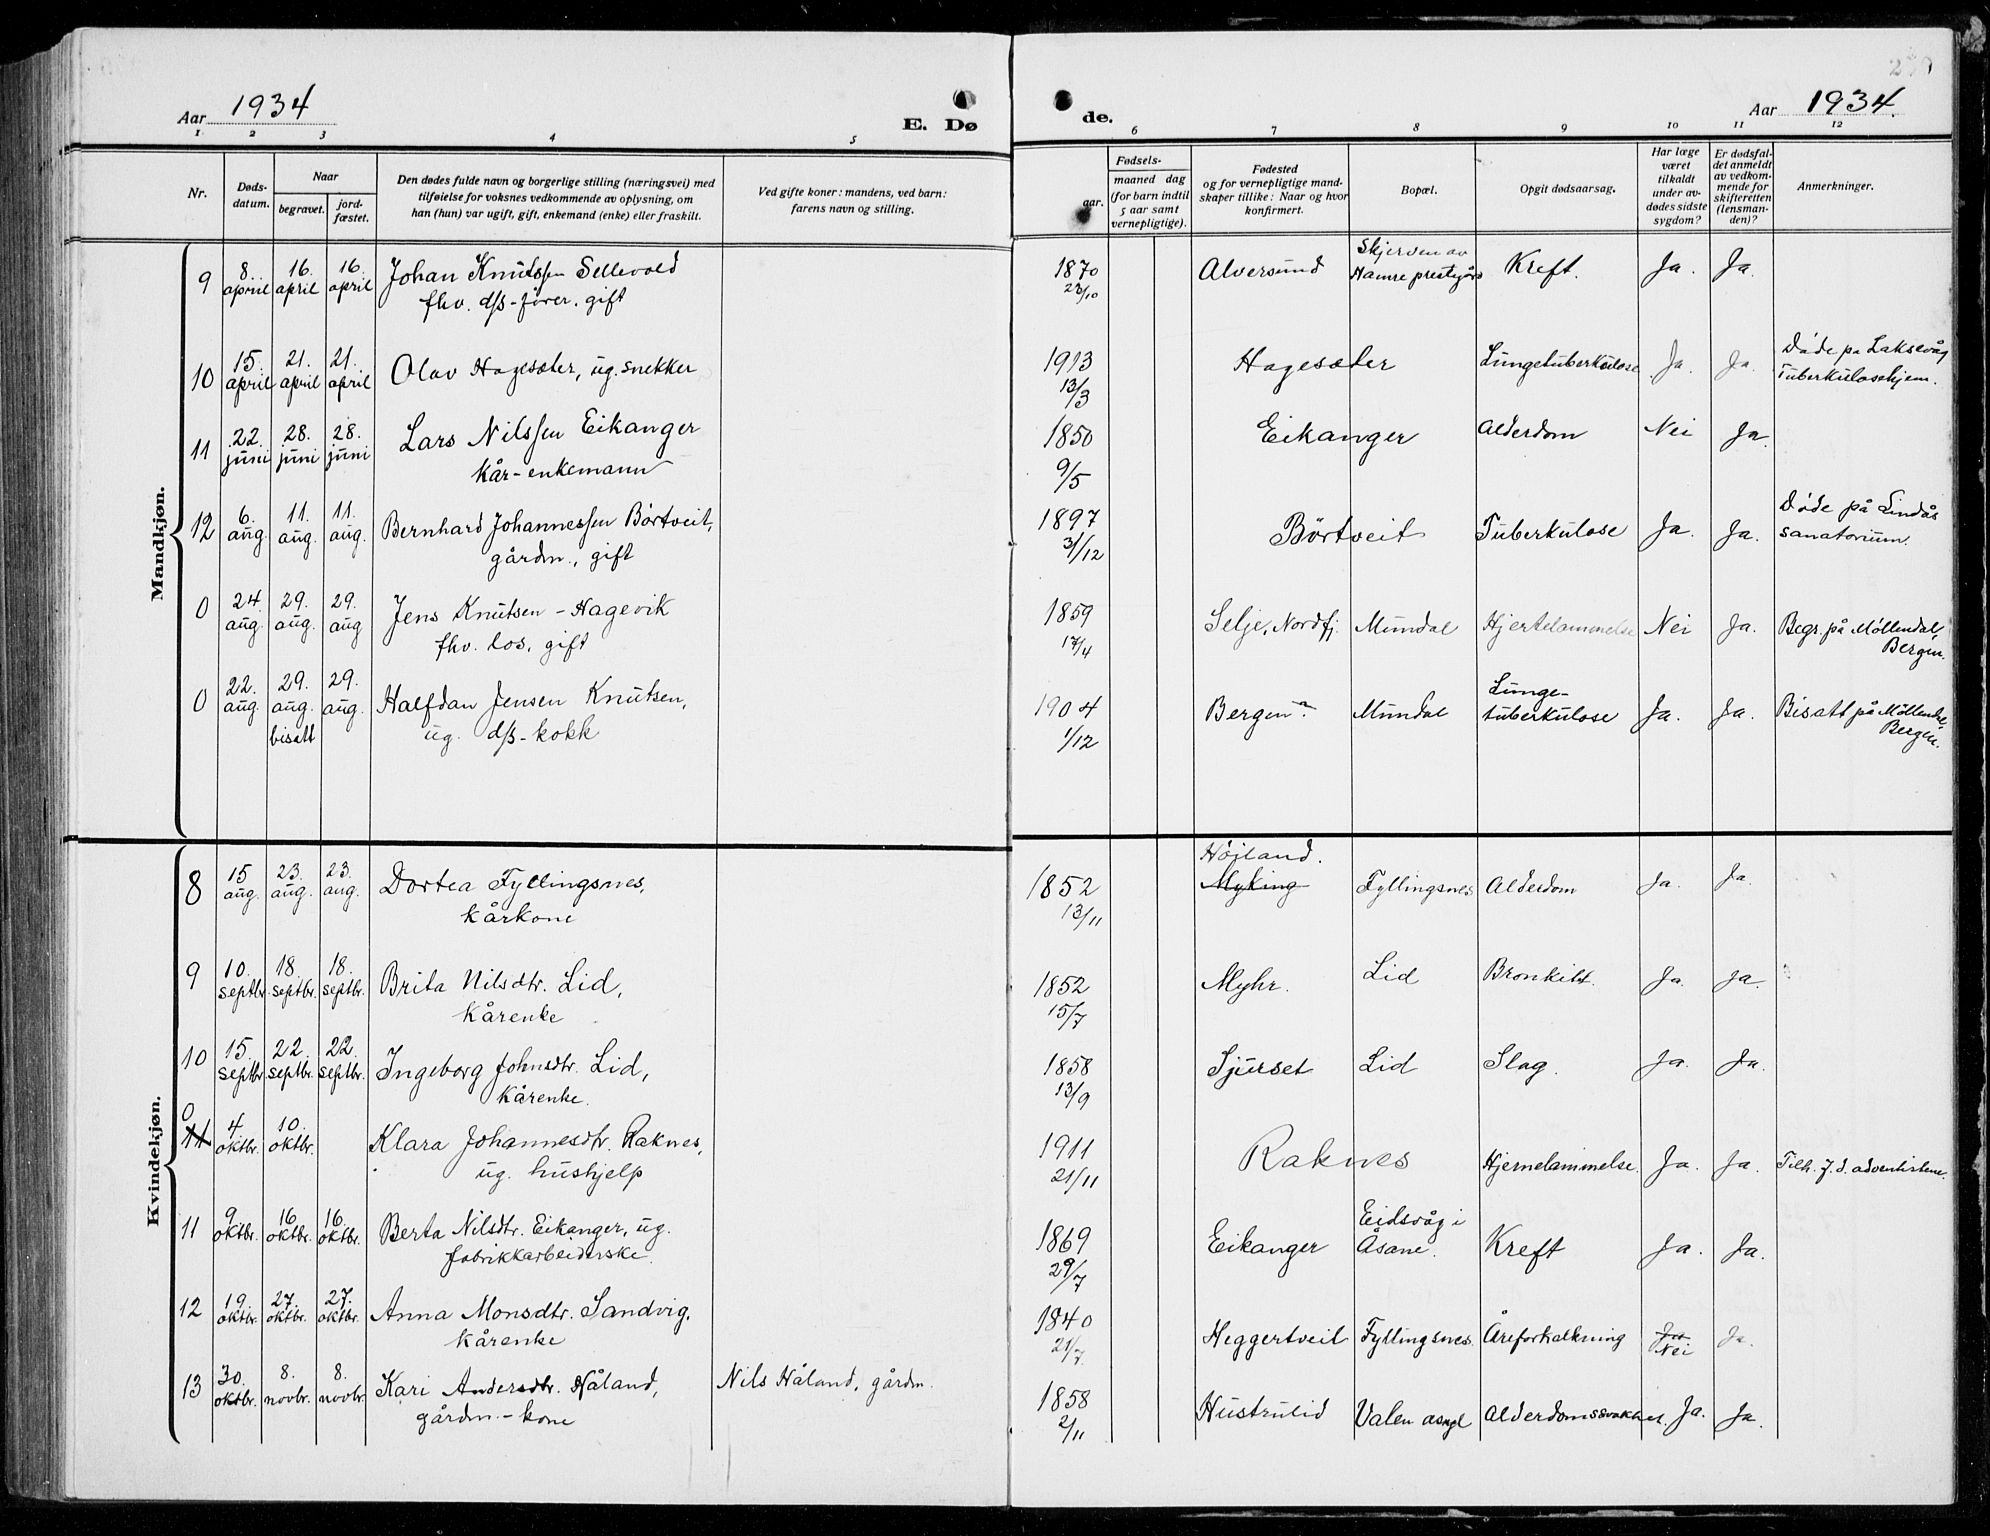 Aar 1934
E. Dø
de.
Aar 1934.
1 2 3 4 5 6 7 8 9 10 11 12
Nr.
Døds-
datum.
Naar
begravet.
jord-
fæstet.
Den dødes fulde navn og borgerlige stilling (næringsvei) med
tilføielse for voksnes vedkommende av oplysning, om
han (hun) var ugift, gift, enkemand (enke) eller fraskilt.
Ved gifte koner: mandens, ved barn:
farens navn og stilling.
Fødsels-
aar.
maaned dag
(for barn indtil
5 aar samt
vernepligtige).
Fødested
og for vernepligtige mand-
skaper tillike: Naar og hvor
konfirmert.
Bopæl.
Opgit dødsaarsag.
Har læge
været
tilkaldt
under av-
dødes sidste
sygdom?
Er dødsfal-
det anmeldt
av vedkom-
mende for
skifteretten
(lensman-
den)?
Anmerkninger.
Mandkjøn.
9 8. april 16. april 16. april Johan Knutssen Sellevold 1870 Alversund Skjerven av Kreft. Ja. Ja.
fhv. d/s-fører. gift 23/10 Hamre prestegård
10 15. april 21. april 21. april Olav Hagesæter, ug. snekker 1913 Hagesæter Lungetuberkulose Ja. Ja. Døde pa Laksevåg
13/3 Tuberkulosehjem.
11 22. juni 28. juni 28. juni Lars Nilssen Eikanger 1850 Eikanger Alderdom Nei Ja.
kår-enkemann 9/5
12 6. aug. 11. aug. 11. aug. Bernhard Johannessen Børtveit, 1897 Børtveit Tuberkulose Ja. Ja. Døde på Lindås
gårdm., gift 31/12 sanatorium.
0 24. aug. 29. aug. 29. aug Jens Knutsen - Hagevik 1859 Selje, Nordfj. Mundal Hjertelammelse Nei Ja. Begr. på Møllendal,
fhv. los, gift 17/4 Bergen.
0 22. aug 29. aug. bisatt 29. aug. Halfdan Jensen Knutsen, 1904 Bergen? Mundal Lunge-
tuberkulose Ja. Ja. Bisatt på Møllendal,
ug. d/s-kokk 1/12 Bergen.
Kvindekjøn.
8 15 aug. 23. aug. 23. aug. Dortea Fyllingsnes, 1852 Høiland. Myking Fyllingsnes Alderdom Ja. Ja.
kårkone 13/11
9 10. septbr. 18. septbr. 18. septbr. Brita Nilsdtr. Lid, 1852 Myhr. Lid Bronkitt. Ja. Ja.
kårenke 15/7
10 15. septbr. 22. septbr. 22. septbr. Ingeborg Johnsdtr. Lid, 1858 Sjurset Lid Slag. Ja. Ja.
kårenke. 13/9
0 11 4 oktbr. 10. oktbr. Klara Johannesdtr. Raknes, 1911 Raknes Hjernelammelse. Ja. Ja. Tilh. 7. d. adventistene
ug. hushjelp 21/11
11 9 oktbr. 16 oktbr. 16. oktbr. Berta Nilsdtr. Eikanger, ug. 1869 Eikanger Eidsvåg i Åsane. Kreft Ja. Ja.
fabrikkarbeiderske. 29/7
12 19. oktbr. 27. oktbr. 27. oktbr. Anna Monsdtr. Sandvig, 1840 Heggertveit Fyllingsnes. Åreforkalkning Ja Nei Ja.
kårenke 21/7.
13 30. oktbr. 8. novbr. 8. novbr. Kari Andersdtr. Håland, Nils Håland, gårdm. 1858 Hustrulid Valen asyl Alderdomssvakhet. Ja. Ja.
gårdm.-kone 2/11